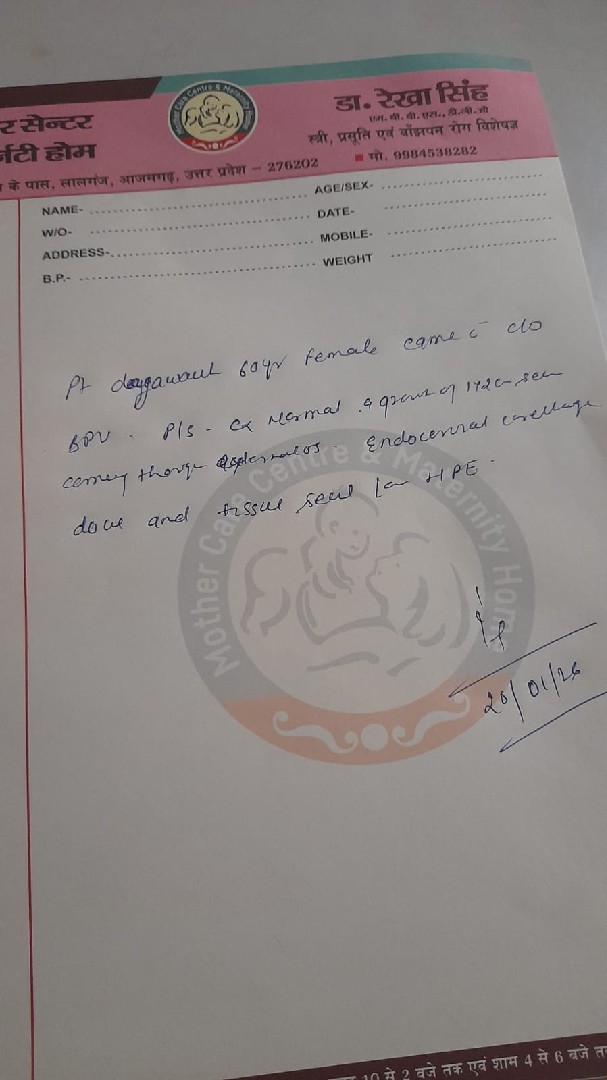 र सेन्टर
र्निटी होम
Mother Care Centre & Maternity Home
डा. रेखा सिंह
एम. बी. बी. एस., डी. जी. ओ
स्त्री, प्रसूति एवं बाँझपन रोग विशेषज्ञ
के पास, लालगंज, आजमगढ़, उत्तर प्रदेश - 276202
मो. 9984538282
NAME-
AGE/SEX-
W/O-
DATE-
ADDRESS-
MOBILE-
B.P.-
WEIGHT
Pt 60yr female came c̄ c/o
BPV. P/S - Cx Normal. growth of seen
through Endocervical curettage
done and tissue sent for HPE.
Mother Care Centre & Maternity Home
20/01/26
10 से 2 बजे तक एवं शाम 4 से 6 बजे त